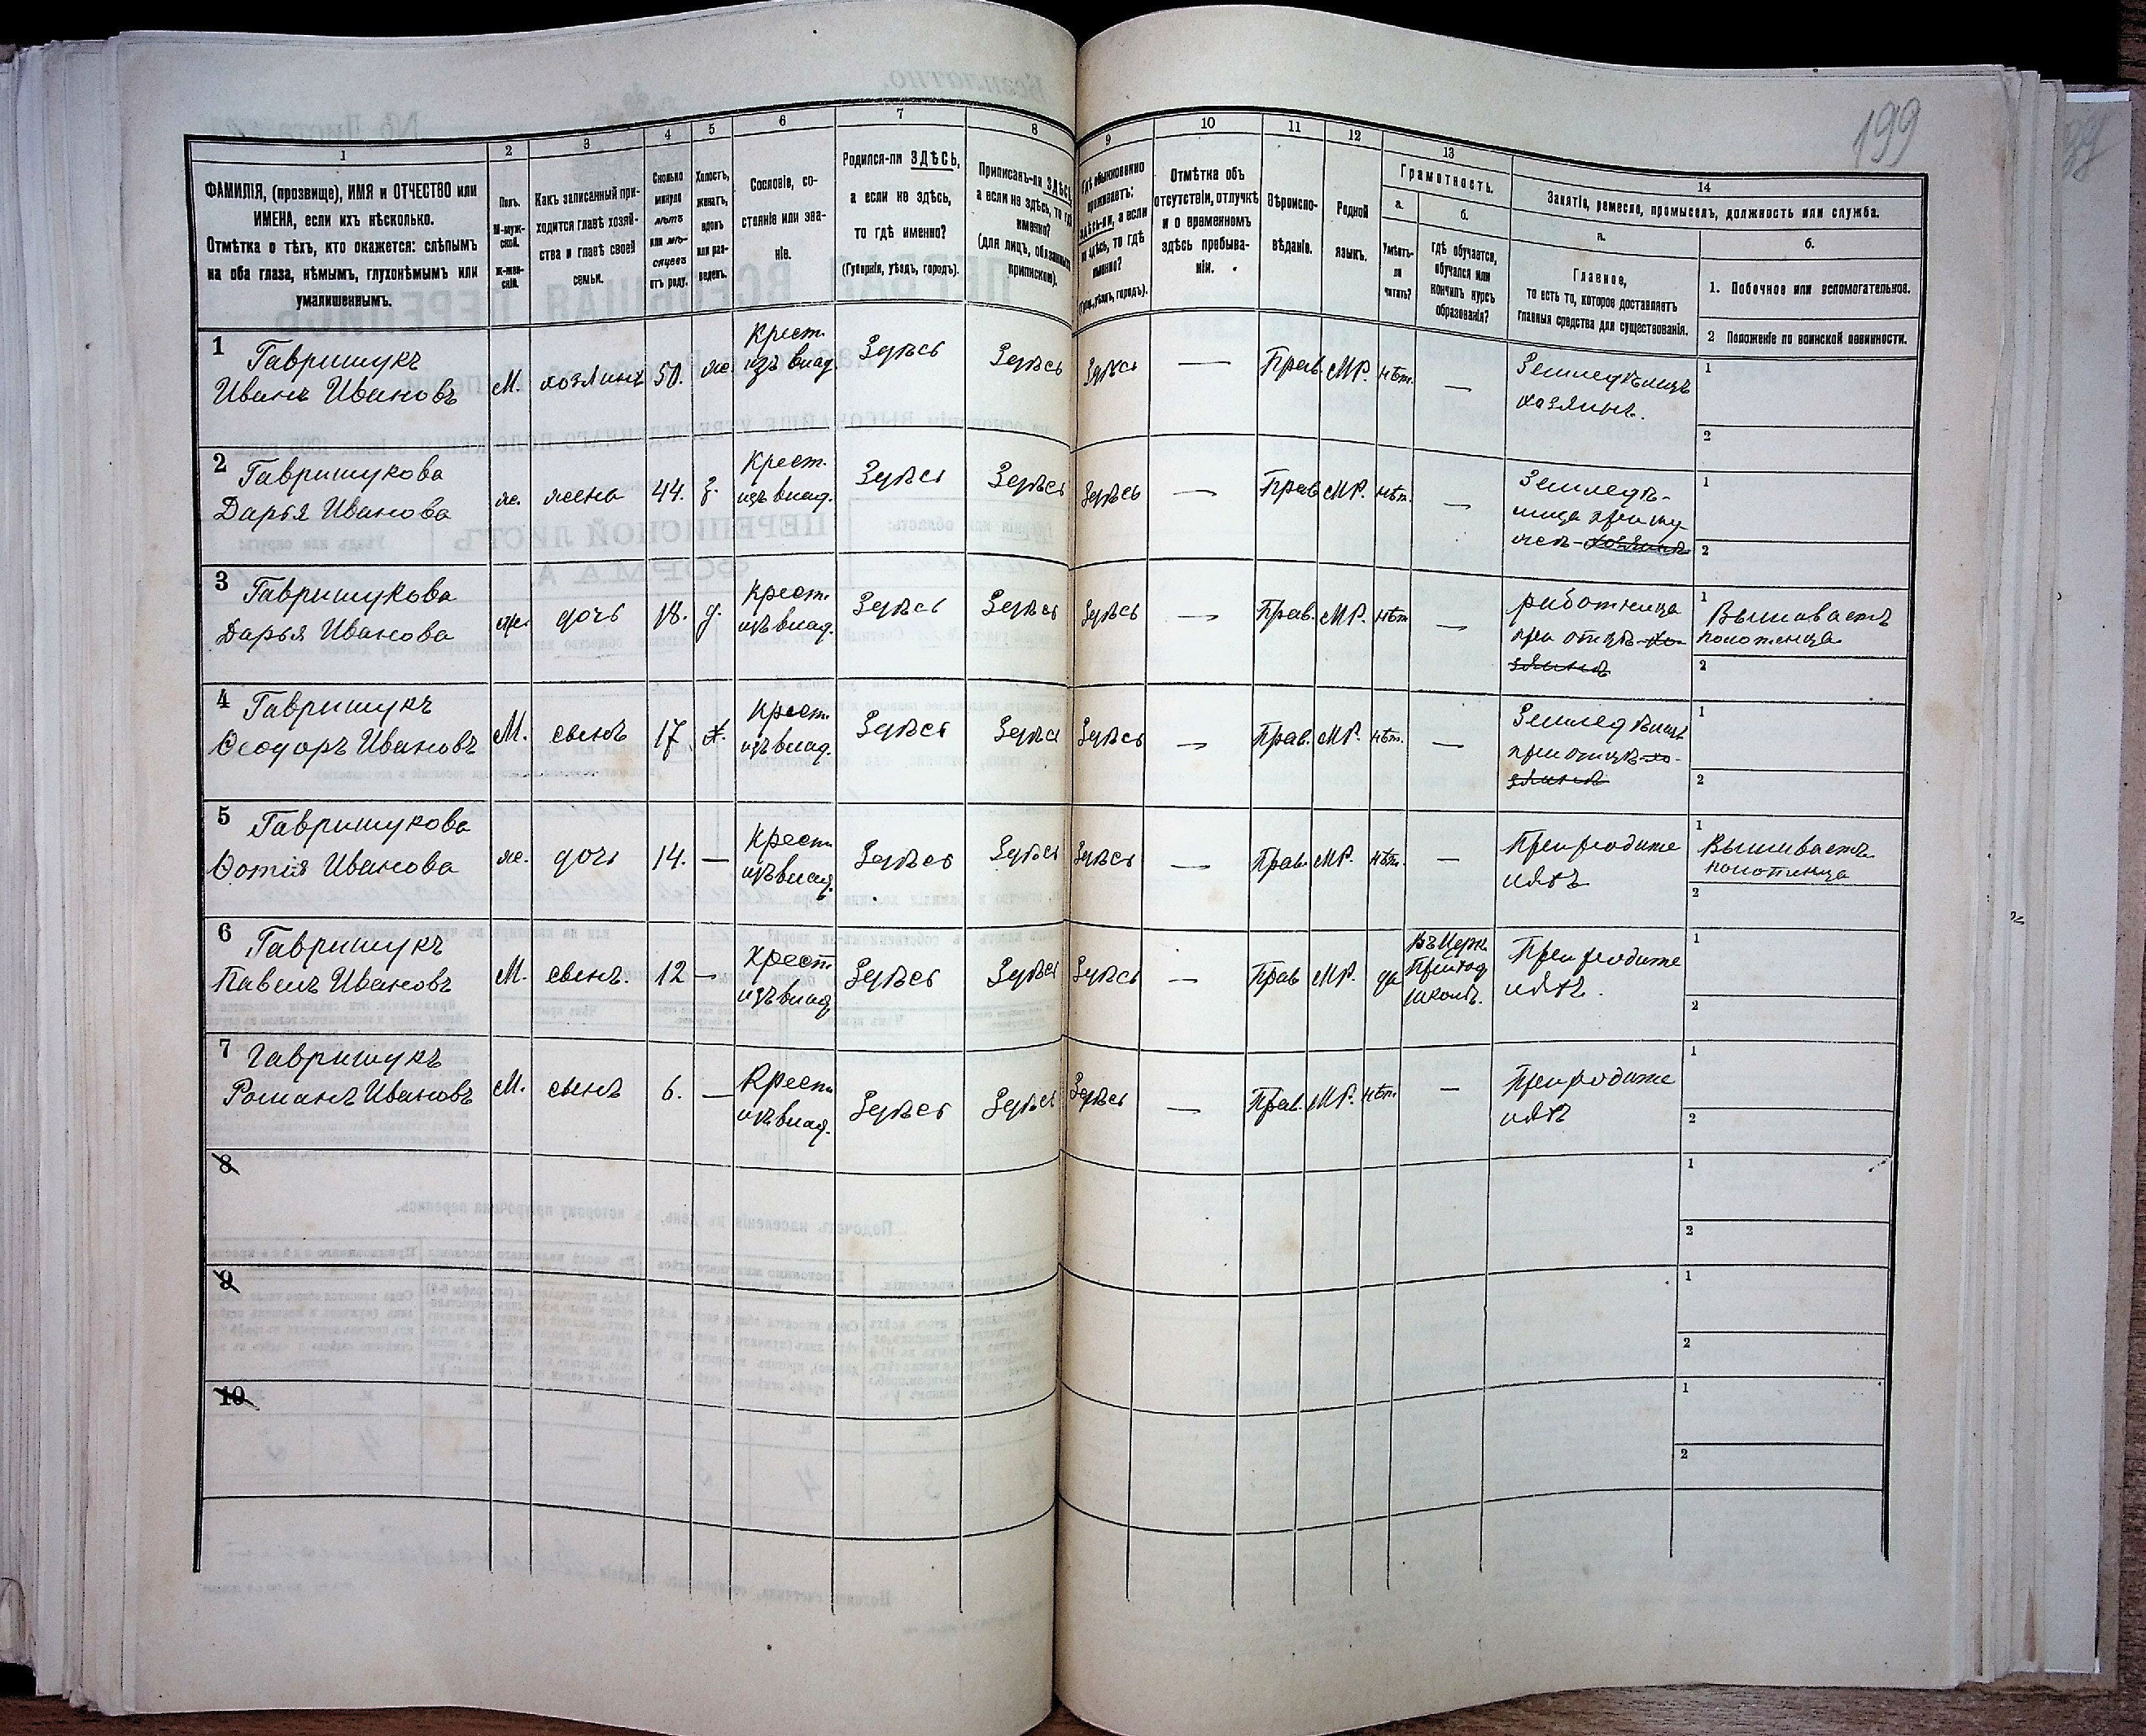 199
1
2
3
4
5
6
7
8
9
10
11
12
13
14
ФАМИЛІЯ, (прозвище), ИМЯ и ОТЧЕСТВО или
ИМЕНА, если ихъ нѣсколько.
Отмѣтка о тѣхъ, кто окажется: слѣпымъ
на оба глаза, нѣмымъ, глухонѣмымъ или
умалишеннымъ.
Полъ.
М-муж-
ской.
Ж-жен-
скій.
Какъ записанный при-
ходится главѣ хозяй-
ства и главѣ своей
семьи.
Сколько
минуло
лѣтъ
или мѣ-
сяцевъ
отъ роду.
Холостъ,
женатъ,
вдовъ
или раз-
веденъ.
Сословіе, со-
стояніе или зва-
ніе.
Родился-ли ЗДѢСЬ,
а если не здѣсь,
то гдѣ именно?
(Губернія, уѣздъ, городъ).
Приписанъ-ли ЗДѢСЬ,
а если не здѣсь, то гдѣ
именно?
(для лицъ, обязанныхъ
припискою).
Гдѣ обыкновенно
проживаетъ:
здѣсь-ли, а если
не здѣсь, то гдѣ
именно?
(Губ., уѣздъ, городъ).
Отмѣтка объ
отсутствіи, отлучкѣ
и о временномъ
здѣсь пребыва-
ніи.
Вѣроиспо-
вѣданіе.
Родной
языкъ.
Грамотность.
а.
Умѣетъ-
ли
читать?
б.
гдѣ обучается,
обучался или
кончилъ курсъ
образованія?
Занятіе, ремесло, промыселъ, должность или служба.
а.
Главное,
то есть то, которое доставляетъ
главныя средства для существованія.
б.
1. Побочное или вспомогательное.
2 Положеніе по воинской повинности.
1
Гавришукъ
Иванъ Ивановъ
М.
хозяинъ
50.
ж.
Крест.
изъ влад.
Здѣсь
Здѣсь
Здѣсь
—
Прав.
МР.
нѣт.
—
Земледѣлецъ
хозяинъ.
1
2
2
Гавришукова
Дарья Иванова
ж.
жена
44.
з.
Крест.
изъ влад.
Здѣсь
Здѣсь
Здѣсь
—
Прав.
МР.
нѣт.
—
Земледѣ-
лица при му-
жѣ-хозяинѣ
1
2
3
Гавришукова
Дарья Иванова
ж.
дочь
18.
д.
Крест.
изъ влад.
Здѣсь
Здѣсь
Здѣсь
—
Прав.
МР.
нѣт
—
работница
при отцѣ-хо-
зяинѣ
1
Вышиваетъ
полотенца
2
4
Гавришукъ
Ѳеодоръ Ивановъ
М.
сынъ
17.
х.
Крест.
изъ влад.
Здѣсь
Здѣсь
Здѣсь
—
Прав.
МР.
нѣт.
—
Земледѣлецъ
при отцѣ-хо-
зяинѣ
1
2
5
Гавришукова
Фотія Иванова
ж.
дочь
14.
—
Крест.
изъ влад.
Здѣсь
Здѣсь
Здѣсь
—
Прав.
МР.
нѣт.
—
При родите
ляхъ
1
Вышиваетъ
полотенца
2
6
Гавришукъ
Павелъ Ивановъ
М.
сынъ.
12
—
Крест
изъ влад.
Здѣсь
Здѣсь
Здѣсь
—
Прав
МР.
да
Въ Церк.
Приход
школѣ.
При родите
ляхъ.
1
2
7
Гавришукъ
Романъ Ивановъ
М.
сынъ
6.
—
Крест.
изъ влад.
Здѣсь
Здѣсь
Здѣсь
—
Прав.
МР.
нѣт.
—
При родите
ляхъ
1
2
8
1
2
9
1
2
10
1
2